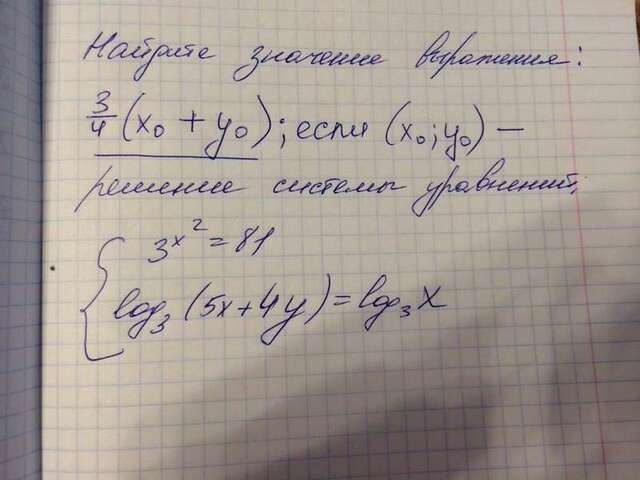 Найдите значение выражения:
3/4 (x₀ + y₀); если (x₀; y₀) —
решение системы уравнений:
3^x² = 81
log₃ (5x + 4y) = log₃ x